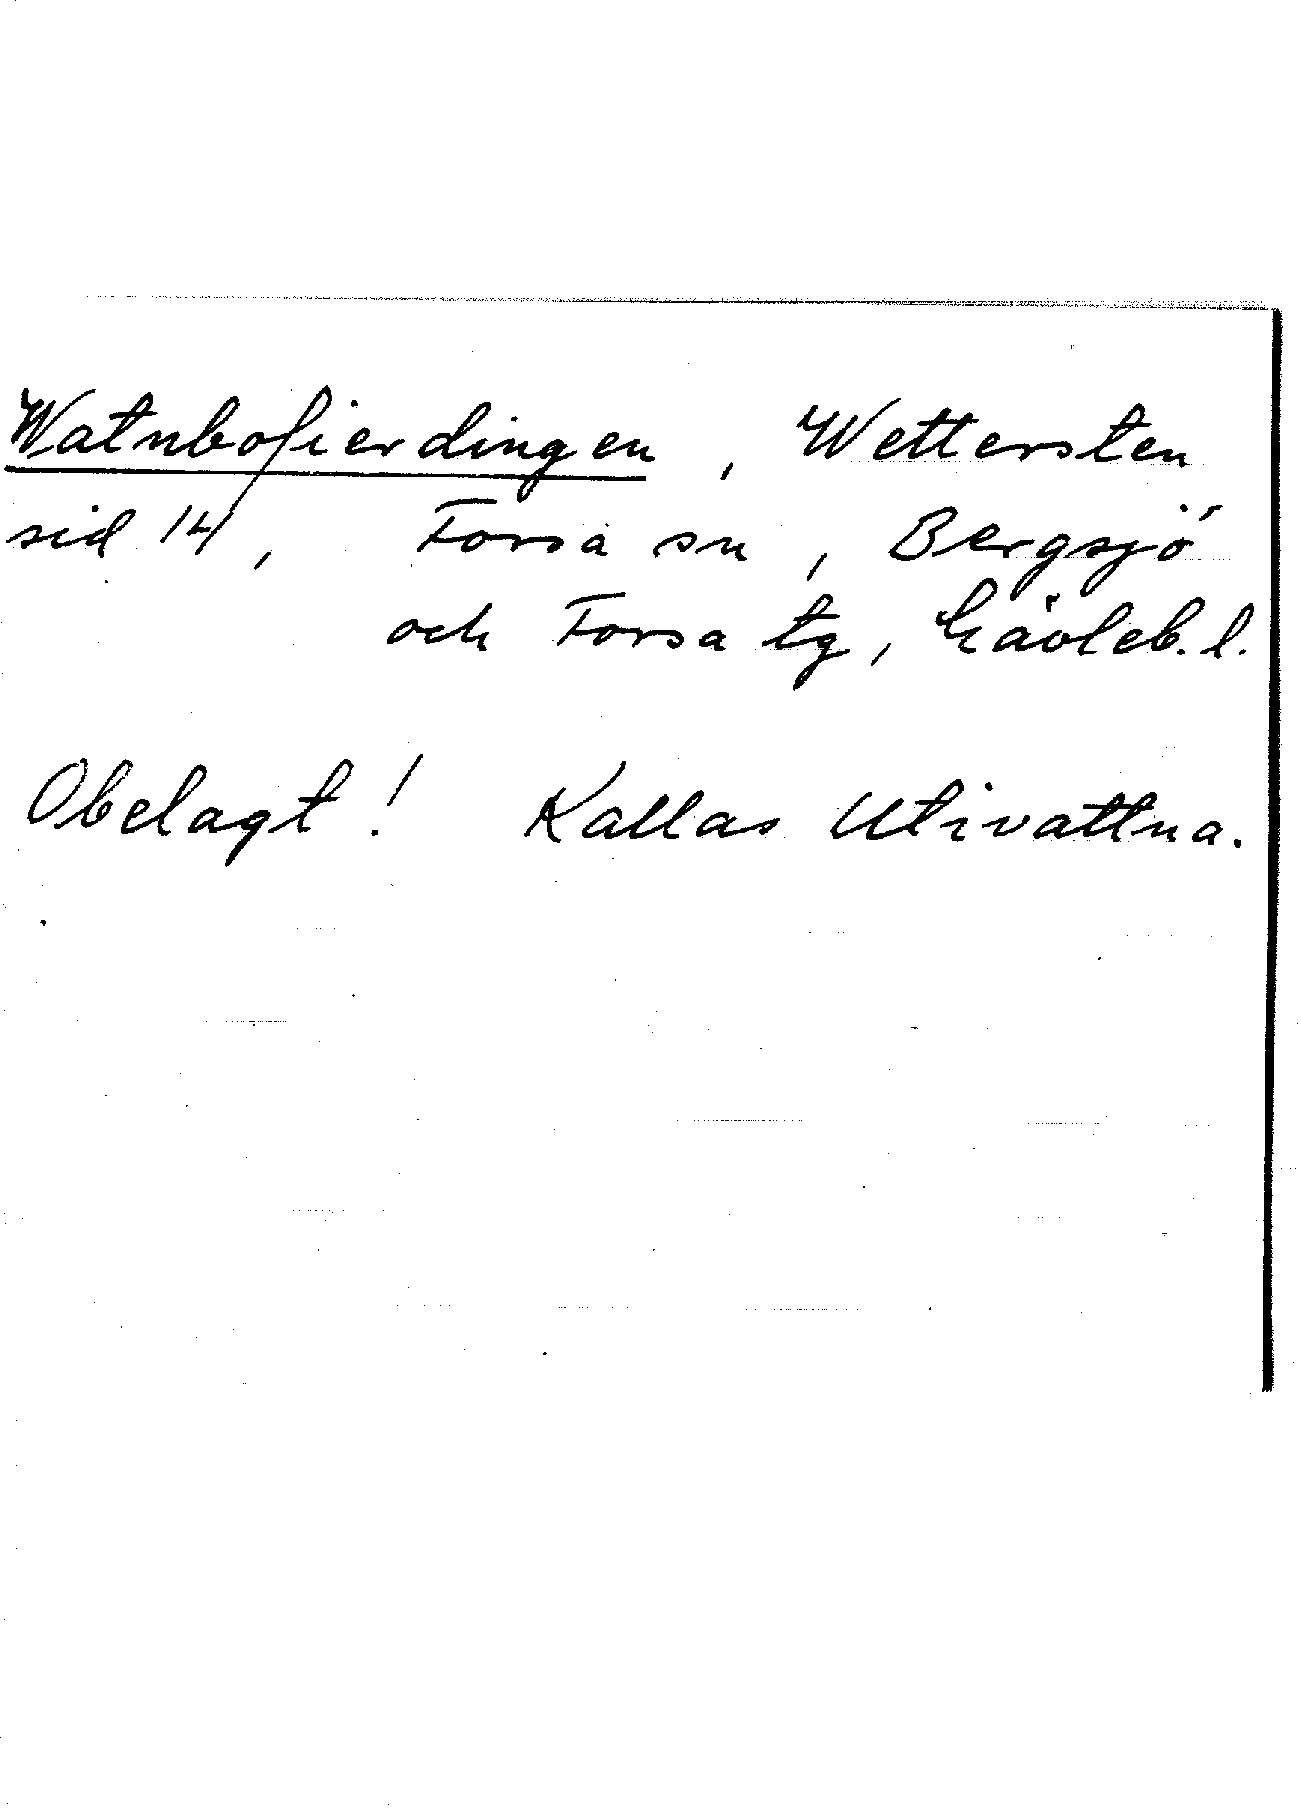 Watnbofierdingen, Wettersten
sid 14, Forsa sn, Bergsjö
och Forsa tg, Gävleb. l.
Obelagt! Kallas Utivattna.